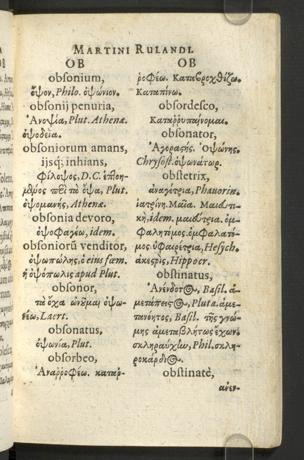 MARTINI RULANDI.
OB
obsonium,
ὄψον, Philo. ὀψώνιον.
obsonij penuria,
Ἀνοψία, Plut. Athenæ.
ὀψοδεία.
obsoniorum amans,
ijsq; inhians,
φίλοψος, D.C.
ὀψομανής, Athenæ.
obsonia devoro,
ὀψοφαγέω, idem.
obsoniorū venditor,
ὀψωπώλης, & eius fœm.
ἡ ὀψόπωλις apud Plut.
obsonor,
τὰ ὄψα ὠνοῦμαι, ὀψω-
νέω, Laert.
obsonatus,
ὀψωνία, Plut.
obsorbeo,
Ἀναρροφέω. καταρ-
OB
ροφέω. Καταβροχθίζω.
Καταπίνω.
obsordesco,
Καταρρυπαίνομαι.
obsonator,
Ἀγοραστής. Ὀψώνης.
Chrysost. ὀψωνάτωρ.
obstetrix,
ἀναγέτρια, Phauorin.
ἰατρίνη. Μαῖα. Μαιευτι-
κὴ, idem. μαιεύτρια. ὀμ-
φαλητόμος. ὀμφαλατό-
μος. ὑφαιρέτρια, Hesych.
ἀκεστρὶς, Hippocr.
obstinatus,
Ἀνένδοτος, Basil. ἀ-
μετάπειστος, Plut. ἀμε-
τανόητος, Basil. τῆς γνώ-
μης ἀμεταβλήτως ἔχων.
σκληραύχην, Phil. σκλη-
ροκάρδιος.
obstinatè,
ἀνεν-